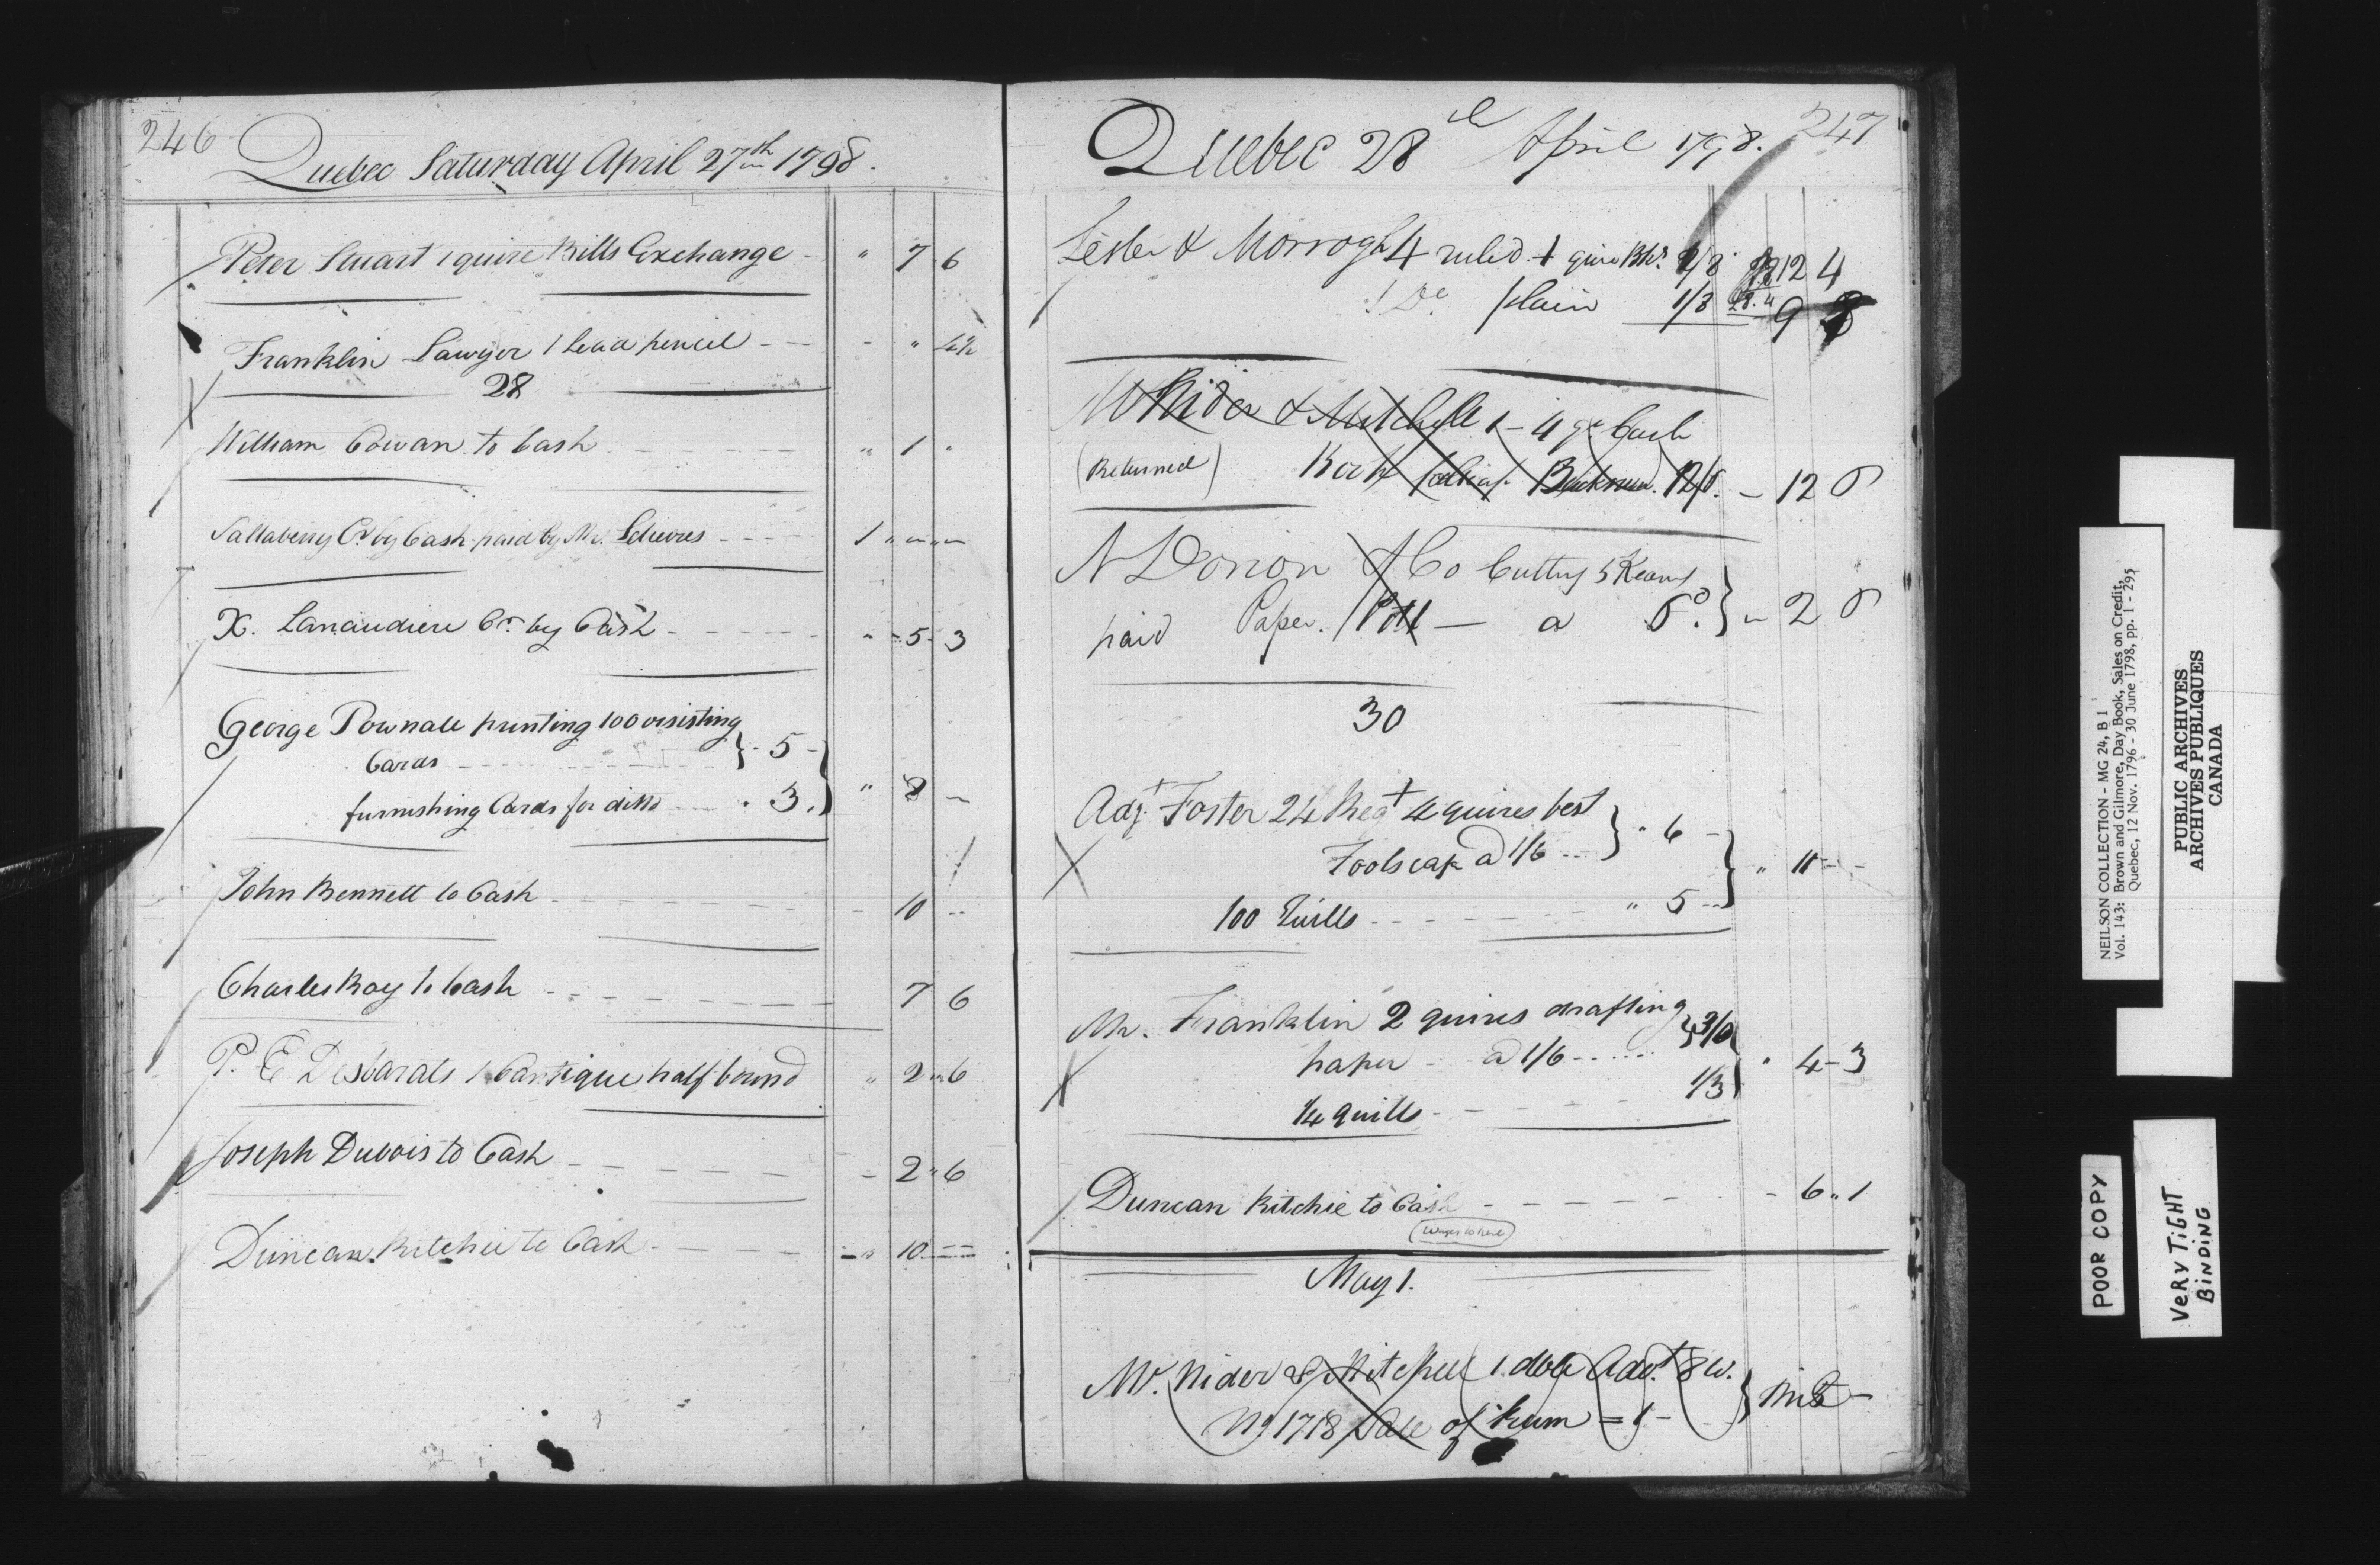 246
Quebec Saturday April 27th 1798.
Peter Stuart 1 quire Bills Exchange - " 7 6
Franklin Lawyer 1 lead pencil - - - " 4½
28
William Cowan to Cash - - - - - " 1 "
Sallaberry Cr by Cash paid by Mr. - - - - 1 " - " -
X. Lanaudiere Cr. by Cash - - - - - " - 5 - 3
George Pownall printing 100 visisting
Cards - - - - } - 5 -
furnishing Cards for ditto - - . 3. } " 8 -
John Bennett to Cash - - - - - - 10 --
Charles Roy to Cash - - - - - - 7 6
P. E Desbarats 1 Cantique half bound " 2 " 6
Joseph Dubois to Cash - - - - - - 2 " 6
Duncan Ritchie to Cash - - - - " 10 --
247
Quebec 28 April 1798.
Lester & Morrogh 4 ruled 1 quire Bks. 12 4
1 Do. plain 1/3 9
McNider & Mitchell 1 - 4 qr Cash
(Returned) Book foolscap 12/6. - 12 6
N Dorion & Co Cutting 5 Reams
paid Paper. Pott - a 6d. } - 2 6
30
Adjt Foster 24 Regt 4 quires best
Foolscap @ 1/6 --- } " 6 -
100 Quills - - - - - " 5 -- } " 11 - -
Mr. Franklin 2 quires drafting
paper - @ 1/6 - - - - } 3/0
¼ quills - - - - - 1/3 } " 4 - 3
Duncan Ritchie to Cash - - - - - - 6 " 1
Wages to here
May 1.
Mc. Nider & Mitchell 1. dble Advt. 8 w.
No 1718 Sale of Rum = 1 - }
NEILSON COLLECTION - MG 24, B 1
Vol. 143: Brown and Gilmore, Day Book, Sales on Credit,
Quebec, 12 Nov. 1796 - 30 June 1798, pp. 1 - 295
PUBLIC ARCHIVES
ARCHIVES PUBLIQUES
CANADA
POOR COPY
VERY TiGHT
BiNDiNG